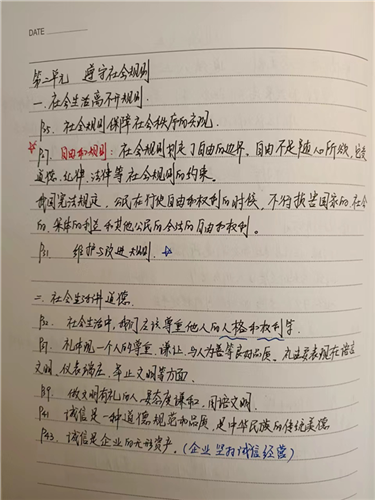 DATE
第二单元 遵守社会规则
一、社会生活离不开规则.
P25. 社会规则保障社会秩序的实现.
☆P27. 自由和规则：社会规则划定了自由的边界。自由不是随心所欲，它受
道德、纪律、法律等社会规则的约束。
我国宪法规定，公民在行使自由和权利的时候，不得损害国家的、社会
的、集体的利益和其他公民的合法的自由和权利。
P31. 维护与改进规则. ☆
二、社会生活讲道德.
社会生活中，我们应该尊重他人的人格和权利等
礼体现一个人的尊重、谦让、与人为善等良好品质。礼主要表现在语言
文明、仪表端庄、举止文明等方面.
P39. 做文明有礼的人，要态度谦和，用语文明.
P41 诚信是一种道德规范和品质，是中华民族的传统美德.
P43. 诚信是企业的无形资产。(企业坚持诚信经营)